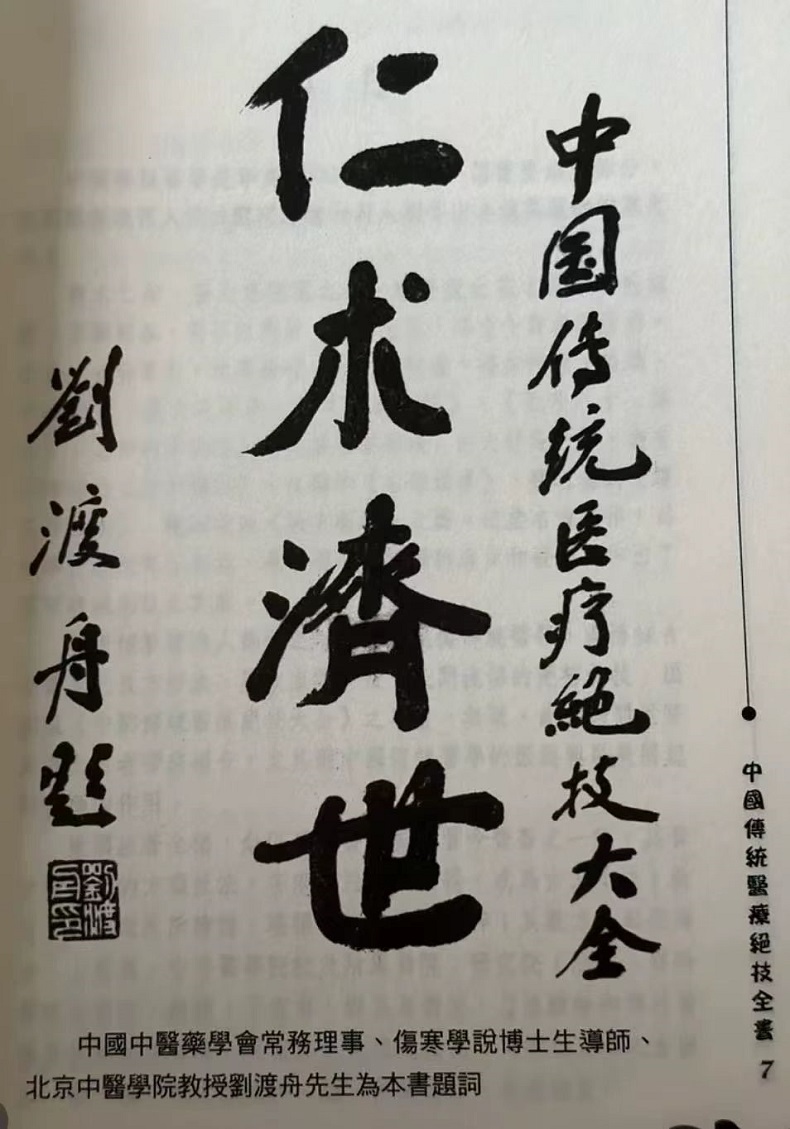 中国传统医疗絕技大全
仁术濟世
劉渡舟題
劉渡舟印
中國中醫藥學會常務理事、傷寒學說博士生導師、
北京中醫學院教授劉渡舟先生為本書題詞
中國傳統醫療絕技全書
7